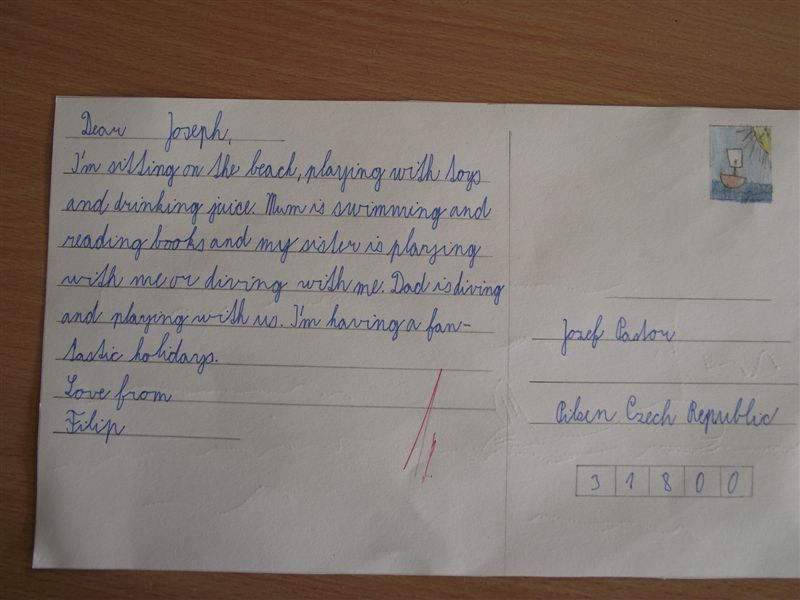 Dear Joseph,
I'm sitting on the beach, playing with toys
and drinking juice. Mum is swimming and
reading books and my sister is playing
with me or diving with me. Dad is diving
and playing with us. I'm having a fan-
tastic holidays.
Love from
Filip
Jozef Pastor
Pilsen Czech Republic
3 1 8 0 0